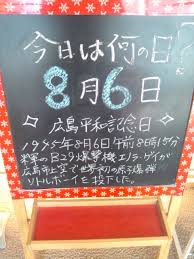 今日は何の日?
8月6日
◇広島平和記念日◇
1945年8月6日午前8時15分
米軍のB29爆撃機エノラ・ゲイが
広島市上空で世界初の原子爆弾
リトルボーイを投下した。